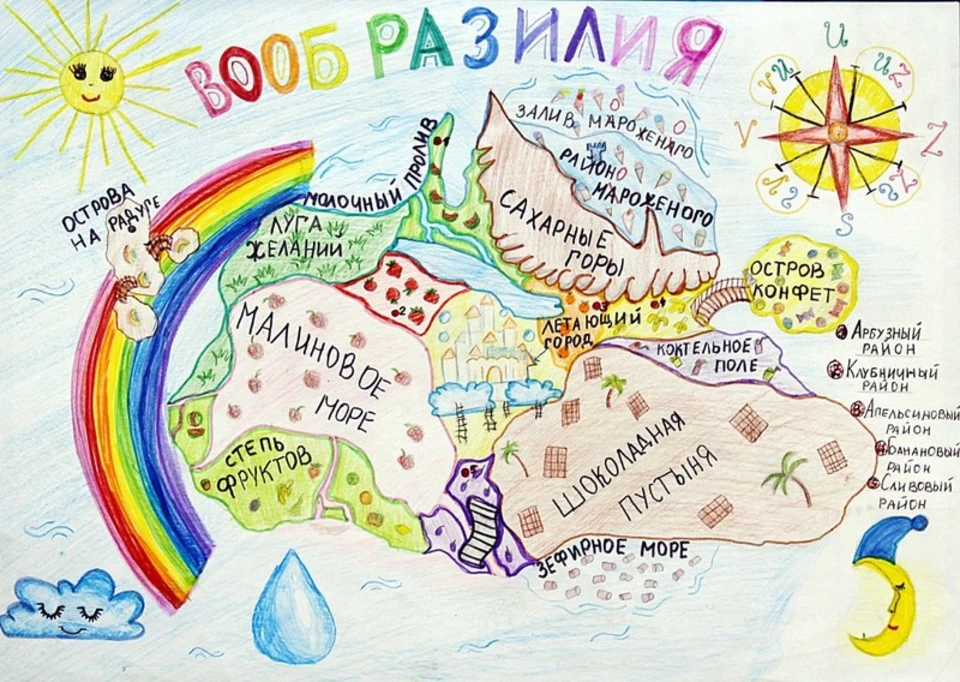 ВООБРАЗИЛИЯ
U
V
Z
S
ОСТРОВА
НА РАДУГЕ
МОЛОЧНЫЙ ПРОЛИВ
ЗАЛИВ МАРОЖЕНАГО
РАЙОН
МАРОЖЕНОГО
ЛУГА
ЖЕЛАНИЙ
САХАРНЫЕ
ГОРЫ
ОСТРОВ
КОНФЕТ
МАЛИНОВОЕ
МОРЕ
2
3
4
ЛЕТАЮЩИЙ
ГОРОД
КОКТЕЛЬНОЕ
ПОЛЕ
1 АРБУЗНЫЙ
РАЙОН
2 КЛУБНИЧНЫЙ
РАЙОН
3 АПЕЛЬСИНОВЫЙ
РАЙОН
4 БАНАНОВЫЙ
РАЙОН
5 СЛИВОВЫЙ
РАЙОН
СТЕПЬ
ФРУКТОВ
ШОКОЛАДНАЯ
ПУСТЫНЯ
5
ЗЕФИРНОЕ МОРЕ